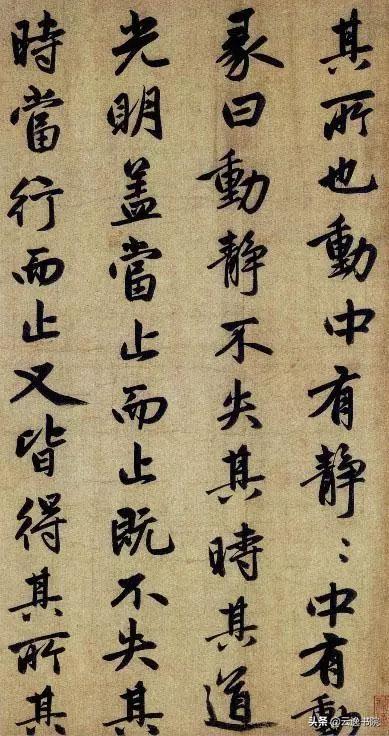 其所也動中有静〻中有動
彖曰動静不失其時其道
光明盖當止而止既不失其
時當行而止又皆得其所其
头条 @云逸书院